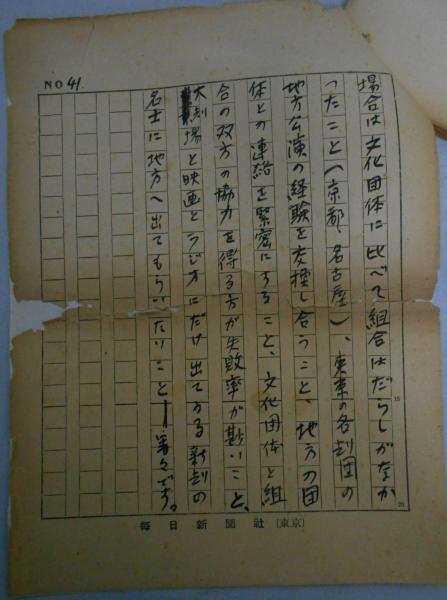 NO 41.
場合は文化団体に比べて組合はだらしがなか
つたこと(京都、名古屋)、東京の各劇団の
地方公演の経験を交換し合うこと、地方の団
体との連絡を緊密にすること、文化団体と組
合の双方の協力を得る方が失敗率が尠いこと、
大劇場と映画とラジオにだけ出てゐる新劇の
名士に地方へ出てもらいたいこと——等々です。
15
20
毎日新聞社(東京)